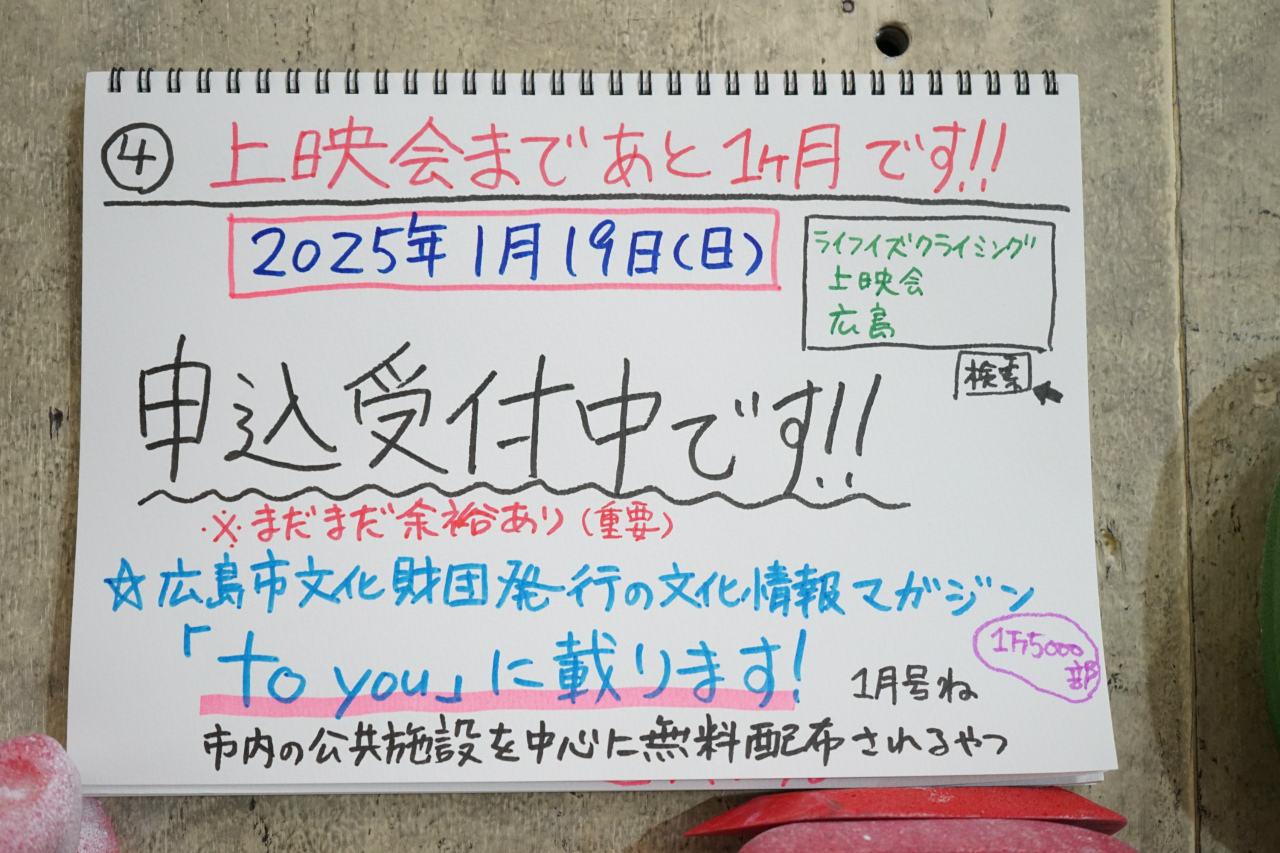 ④ 上映会まであと1ヶ月です!!
2025年1月19日(日)
ライフイズクライミング
上映会
広島
検索
申込受付中です!!
※まだまだ余裕あり(重要)
☆広島市文化財団発行の文化情報マガジン
「to you」に載ります!
1月号ね
1万5000部
市内の公共施設を中心に無料配布されるやつ